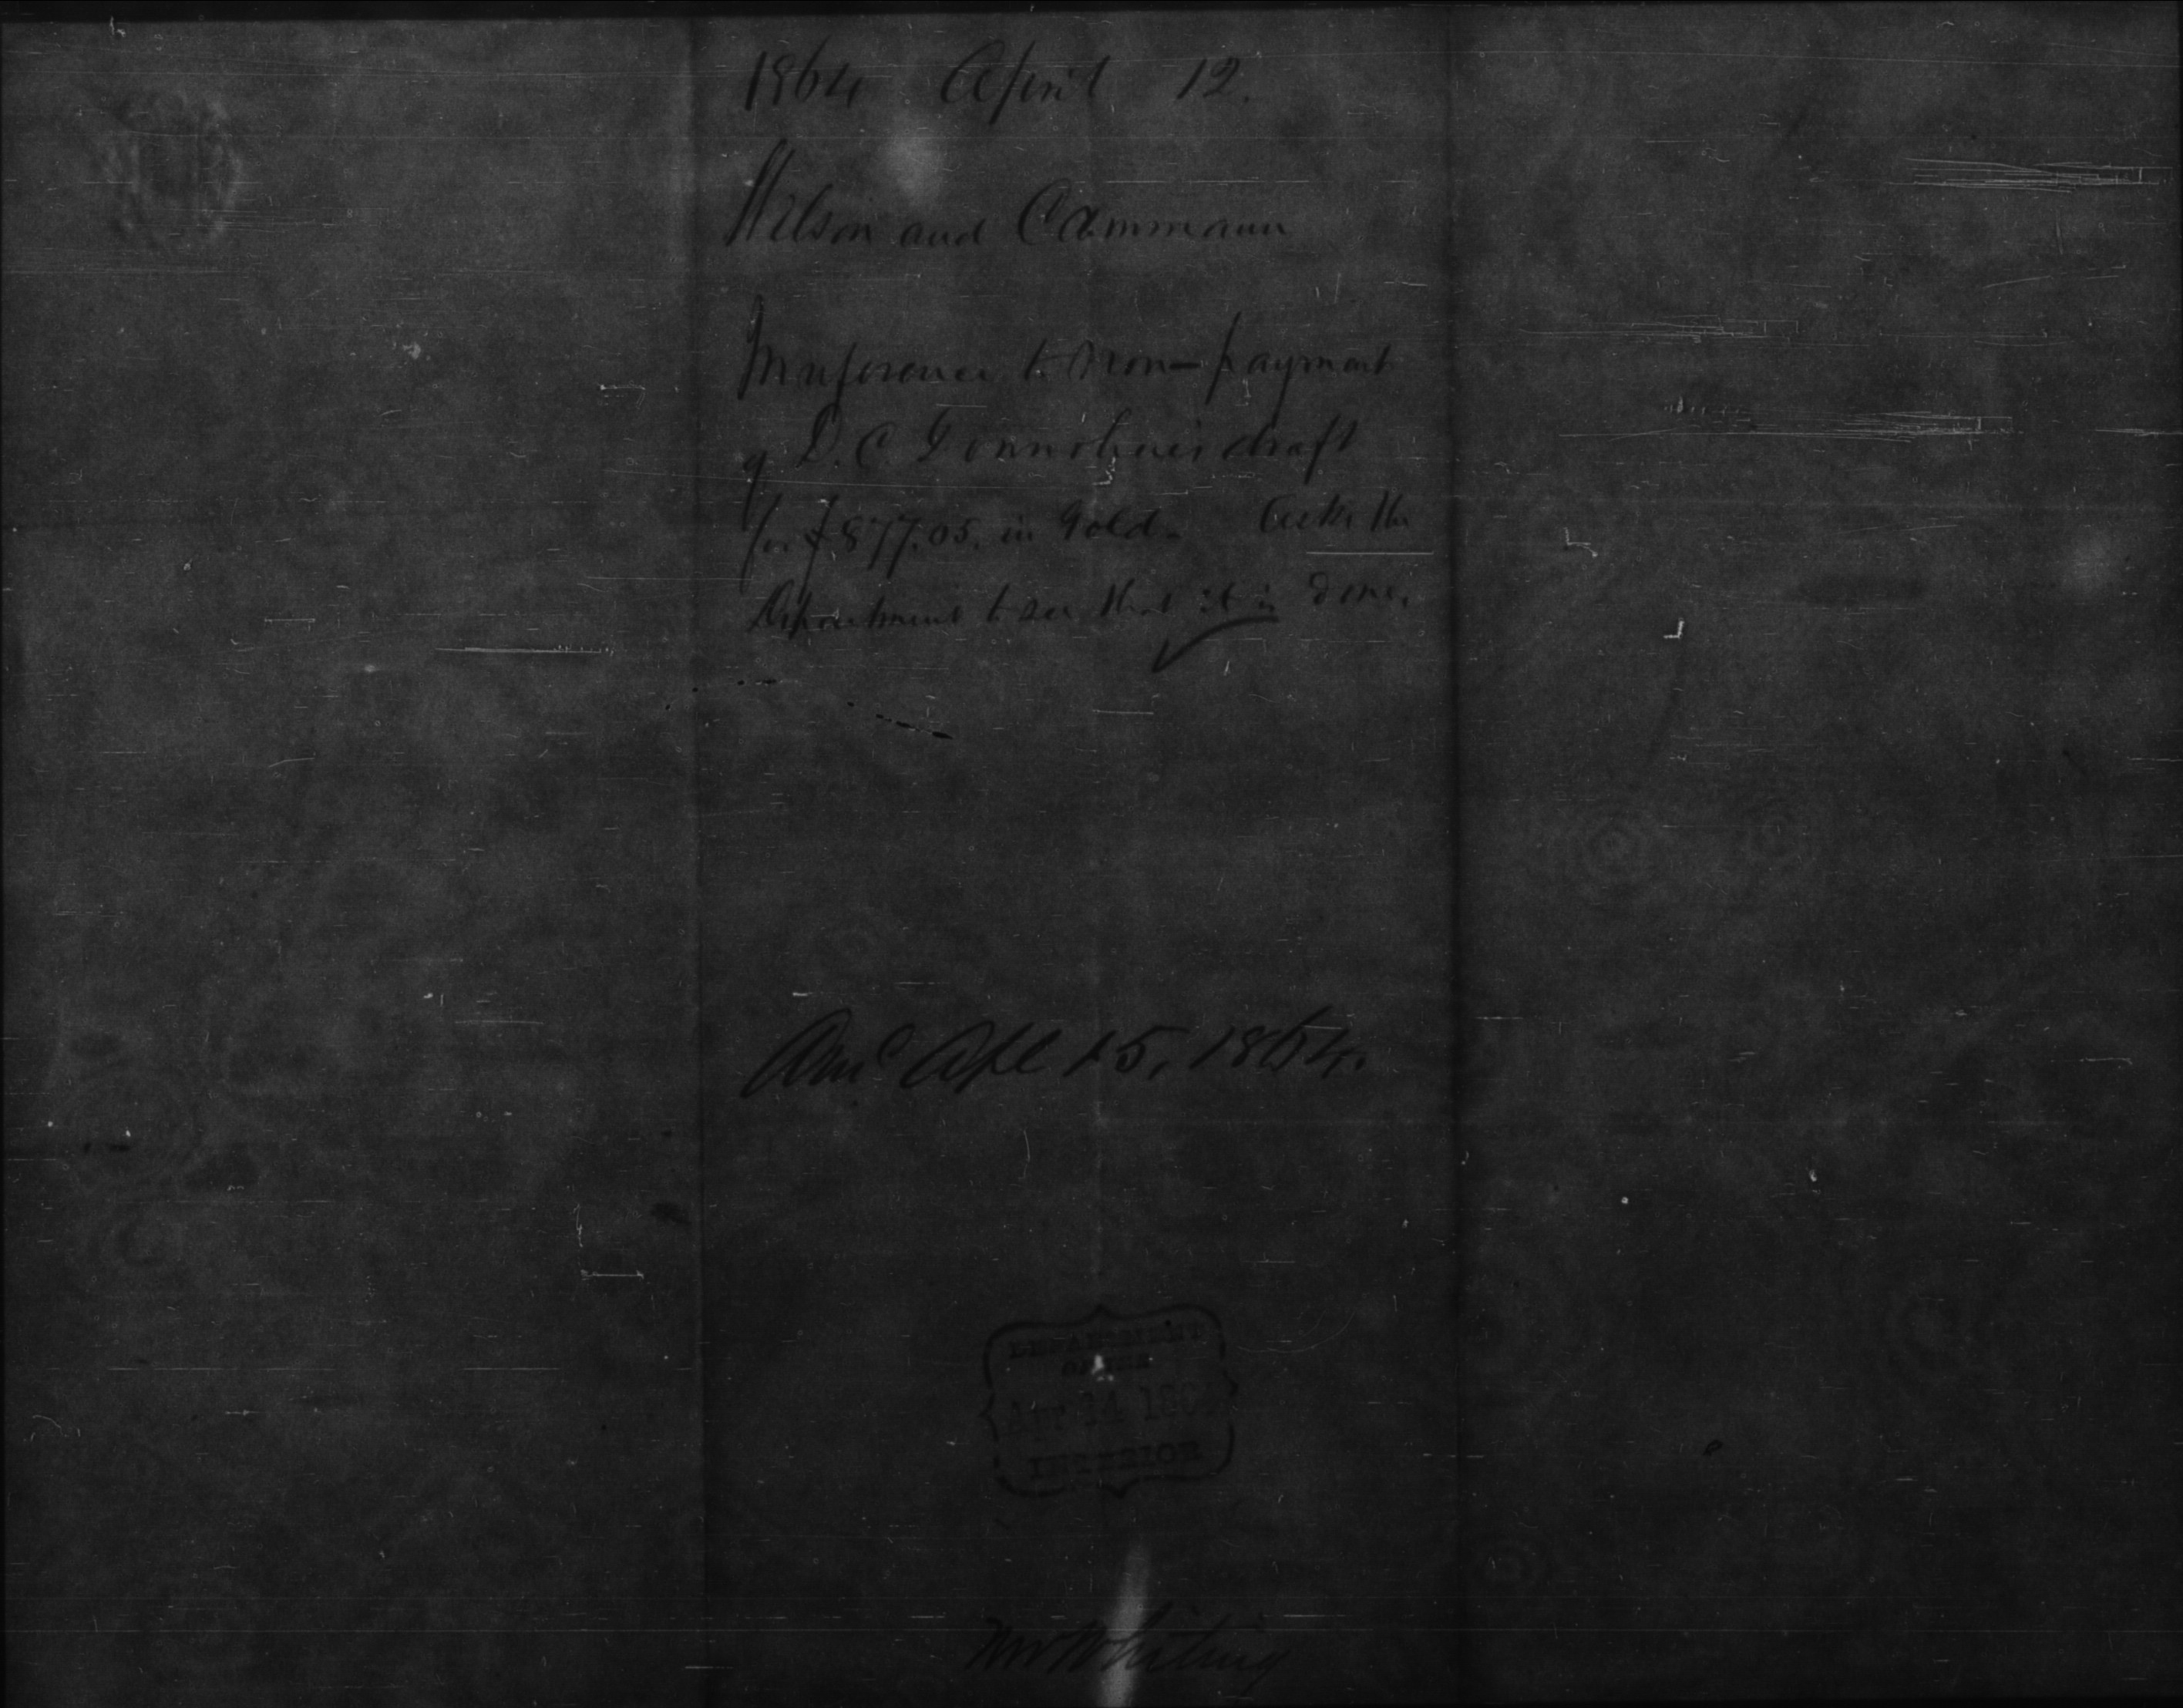 1864 April 12.
Wilson and Cammann
In reference to non-payment
of D. C. Donnohue's draft
for $877.05. in Gold. Asks the
Department to see that it is done.
Ansd Apl 15, 1864.
DEPARTMENT
OF THE
Apr 14 1864
INTERIOR
Mr Whiting